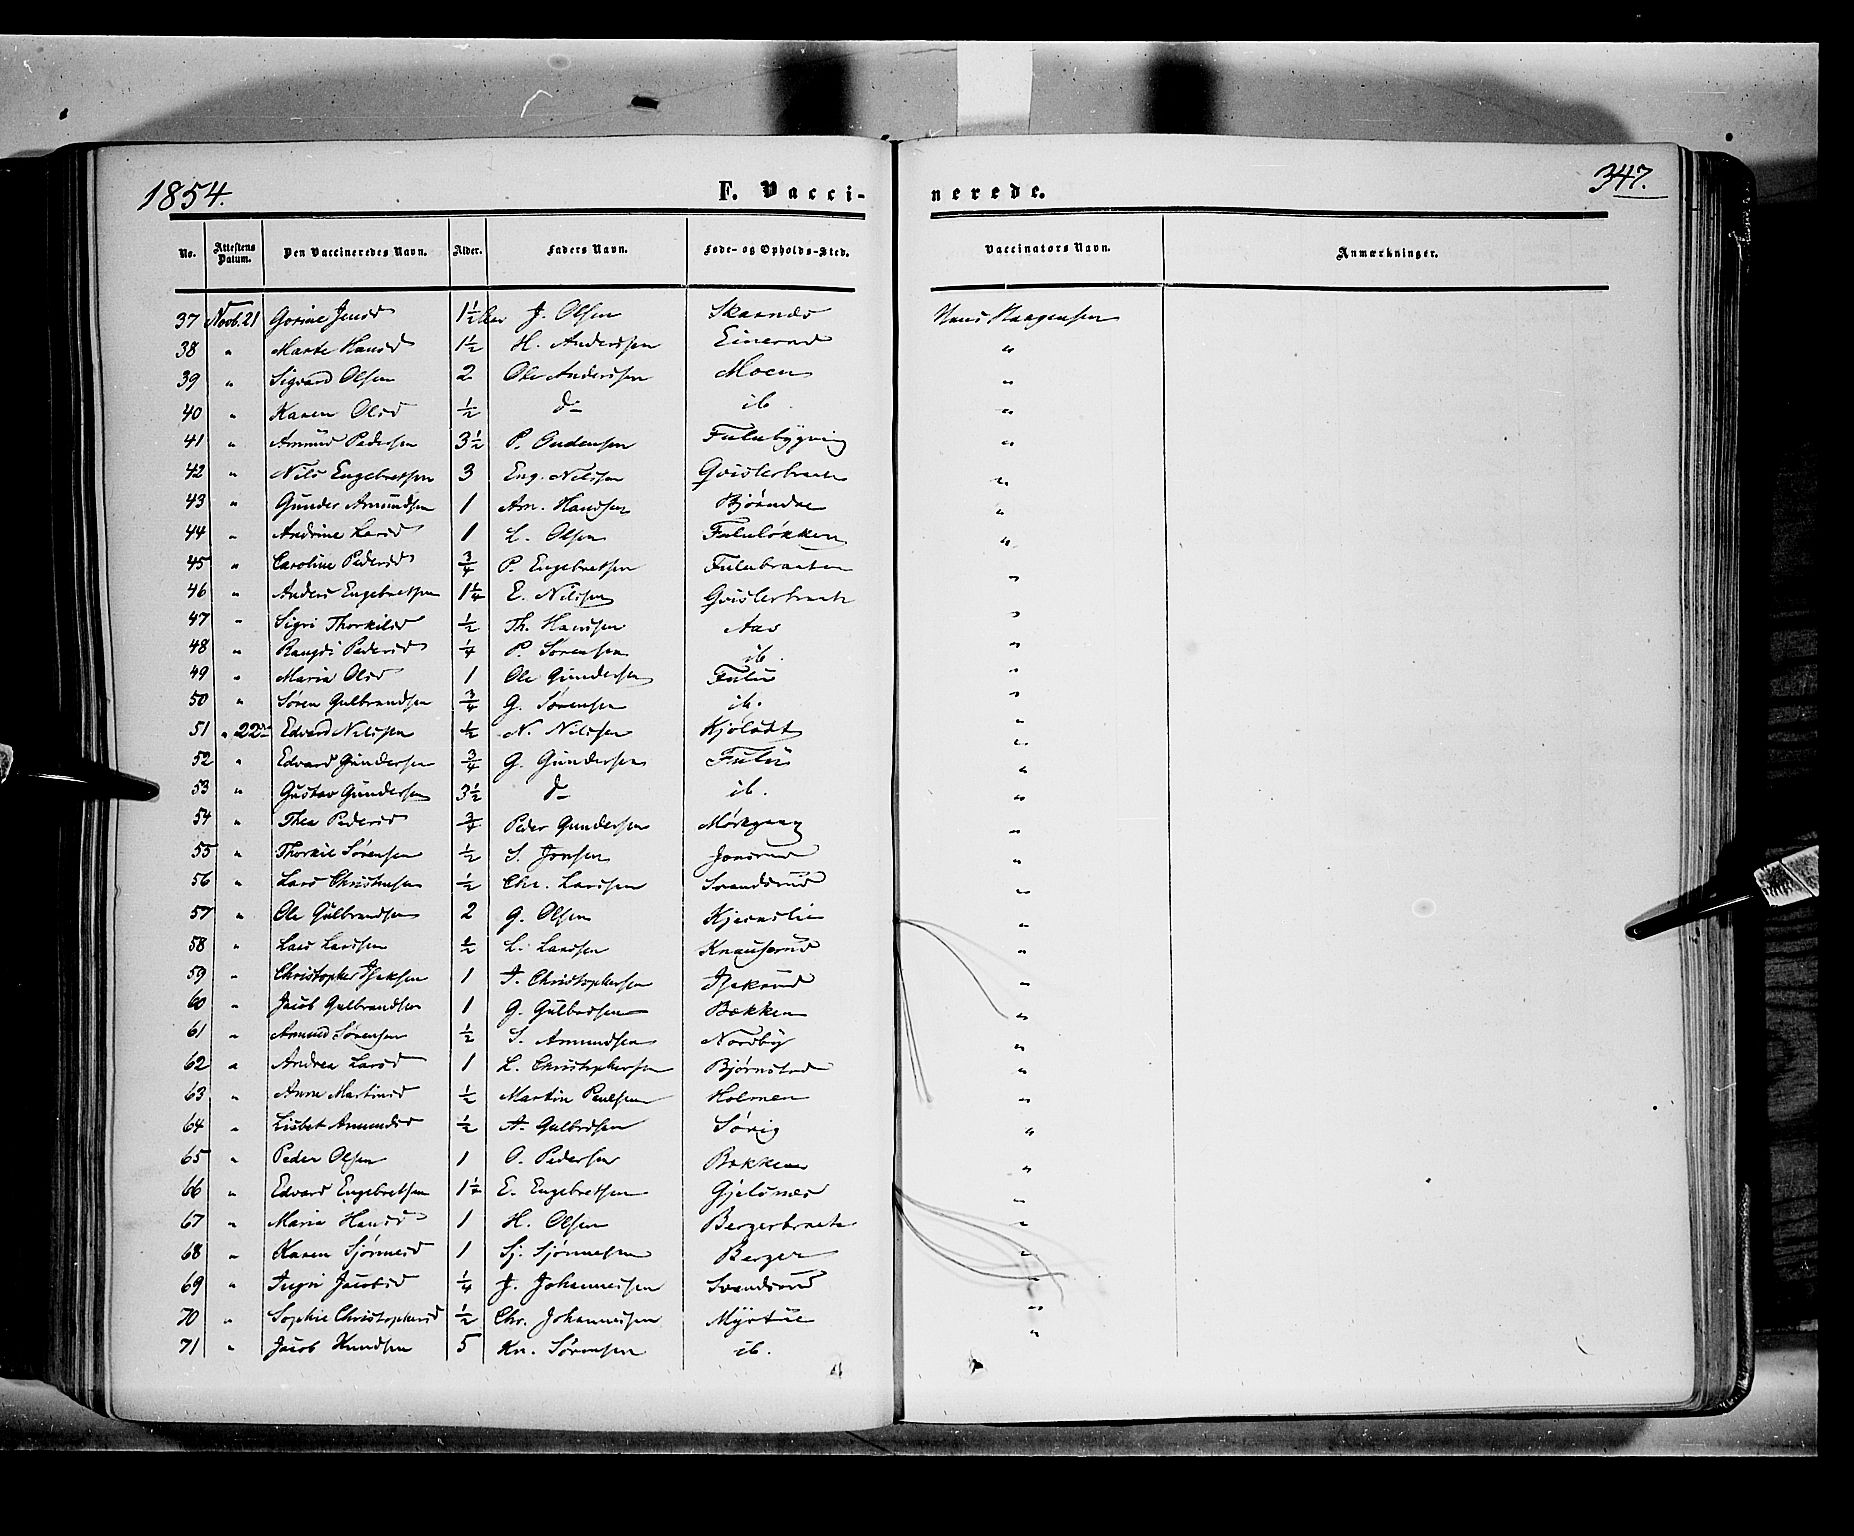 1854.
F. Vacci-nerede.
347.
No. Attestens Datum. Den Vaccineredes Navn. Alder. Faders Navn. Føde- og Opholds-Sted. Vaccinators Navn. Anmærkninger.
37 Novb. 21 Gorine Jensd 1½ Aar J. Olsen Skaanes Hans Haagensen
38 " Marte Hansd 1½ H. Andersen Einerud "
39 " Sigvard Olsen 2 Ole Andersen Moen "
40 " Karen Olsd ½ do ib. "
41 " Amund Pedersen 3½ P. Audensen Fulubygning "
42 " Nils Engebretsen 3 Eng. Nilssen Gvislerbraate "
43 " Gunder Amundsen 1 Am. Handsen "
44 " Andrine Larsd 1 L. Olsen Fululøkken "
45 " Caroline Pedersd ¾ P. Engebretsen Fulubraaten "
46 " Anders Engebretsen 1¼ E. Nilssen Gvislerbraate "
47 " Sigri Thorkilsd ½ Th. Hanssen Aas "
48 " Rangdi Pedersd ¼ P. Sørensen ib. "
49 " Maria Olsd 1 Ole Gundersen Fulu "
50 " Søren Gulbrandsen ¾ G. Sørensen ib. "
51 " 22de Edvard Nilssen ½ N. Nilssen Kjølstt "
52 " Edvard Gundersen ¾ G. Gundersen Fulu "
53 " Gustav Gundersen 3½ do ib. "
54 " Thea Pedersd ¾ Peder Gundersen Mørkgang "
55 " Thorkil Sørensen ½ S. Jonsen Jonsrud "
56 " Lars Christensen ½ Chr. Larssen Svendsrud "
57 " Ole Gulbrandsen 2 G. Olsen Kjernslie "
58 " Lars Larssen ½ L. Larssen Knauserud "
59 " Christopher Isaksen 1 I. Christophersen Isaksrud "
60 " Jacob Gulbrandsen 1 G. Gulbrdsen Bakken "
61 " Amund Sørensen ½ S. Amundsen Nordby "
62 " Andrea Larsd 1 L. Christophersen Bjørnstad "
63 " Anne Martinsd ½ Martin Paulsen Holmen "
64 " Lisbet Amundsd ½ A. Gulbrdsen Sørig "
65 " Peder Olsen 1 O. Pedersen Bakkene "
66 " Edvard Engebretsen 1¼ E. Engebretsen Gjelsnes "
67 " Maria Hansd 1 H. Olsen Bergerbraate "
68 " Karen Sjønnesd 1 Sj. Sjønnesen Berger "
69 " Ingri Jacobsd ¼ J. Johannessen Svendsrud "
70 " Sophie Christophersd ½ Chr. Johannessen Myrtue "
71 " Jacob Knudsen 5 Kn. Sørensen ib. "